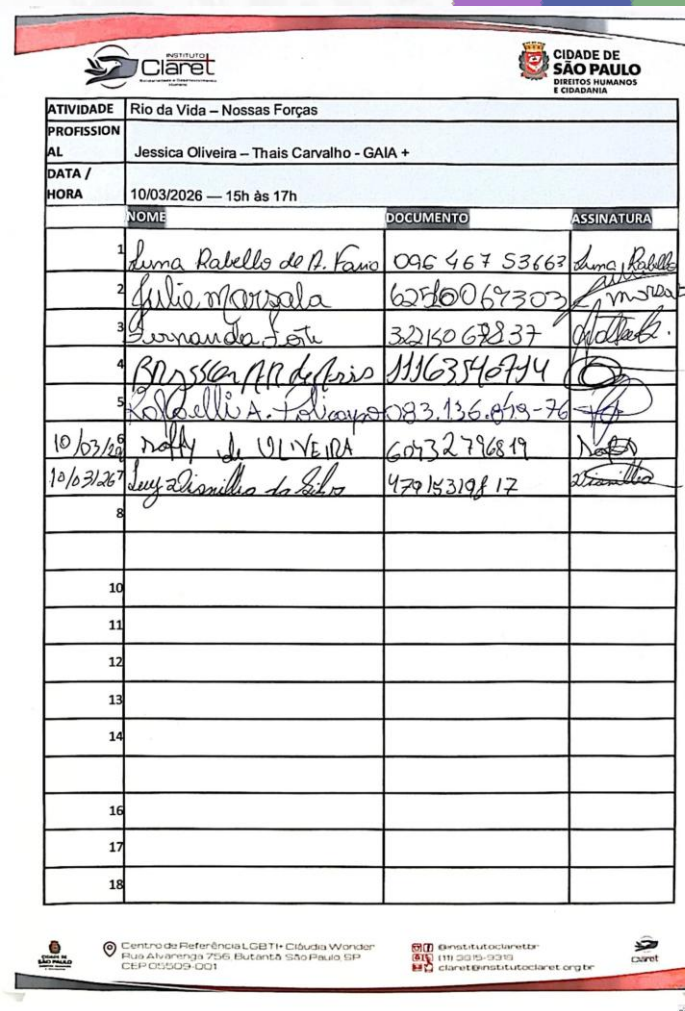 INSTITUTO
Claret
CIDADE DE
SÃO PAULO
DIREITOS HUMANOS
E CIDADANIA
ATIVIDADE Rio da Vida – Nossas Forças
PROFISSION
AL Jessica Oliveira – Thais Carvalho - GAIA +
DATA /
HORA 10/03/2026 — 15h às 17h
NOME DOCUMENTO ASSINATURA
1 Luma Rabello de A. 096 467 53663 Luma Rabello
2 Julie marsala
3 Fernanda
4 11163546714
5 A. 083.136.
10/03/26 6 de OLIVEIRA 60432796819
10/03/26 7 Luiz da Silva 47915319817
8
10
11
12
13
14
16
17
18
CIDADE DE
SÃO PAULO
Centro de Referência LGBTI+ Cláudia Wonder
Rua Alvarenga 756, Butantã São Paulo, SP
CEP 05509-001
@institutoclaretbr
claret@institutoclaret.org.br
Claret